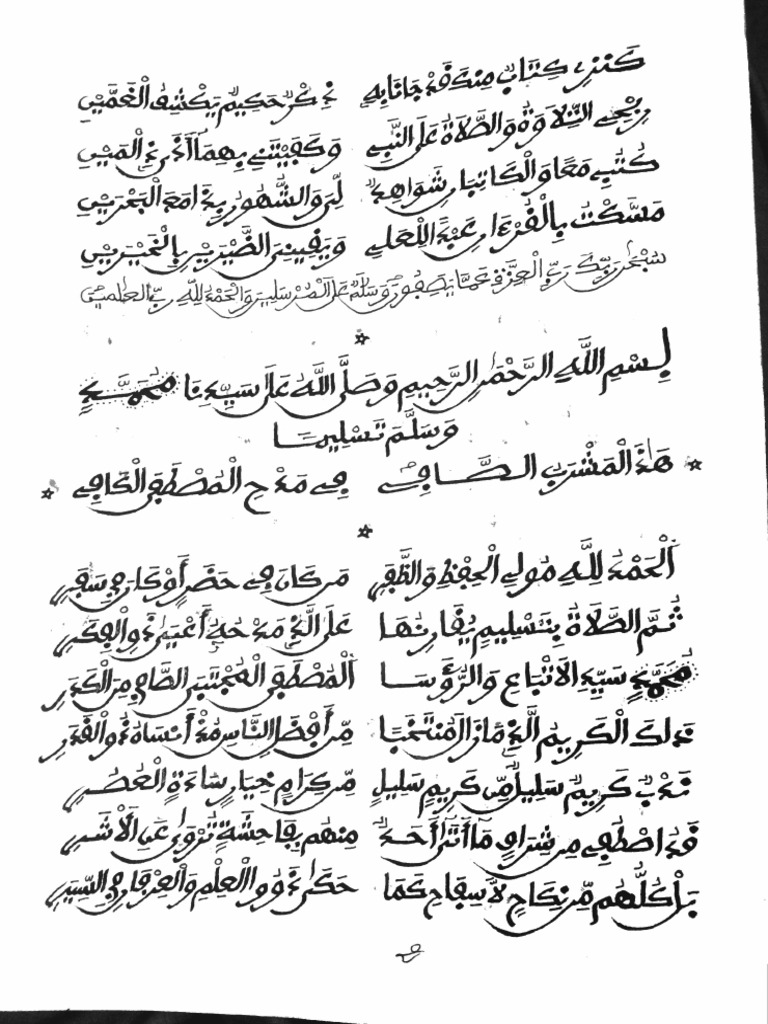 كَنْزِي كِتَابٌ مِنْكَ قَدْ جَانَا بِهِ ذِكْرٌ حَكِيمٌ يَكْشِفُ الْغَمَّيْنِ
التِّلَاوَةُ وَالصَّلَاةُ عَلَى النَّبِي وَكَفَيْتَنِي بِهِمَا أَذَى الْمَيْنِ
كُتُبِي مَعًا وَالْكَاتِبَانِ شَوَاهِدٌ لِي وَالشُّهُورُ
مَسَّكْتُ بِالْقُرْءَانِ عَبْدَ اللَّهِ وَيَقِينِيَ
سُبْحَٰنَ رَبِّكَ رَبِّ الْعِزَّةِ عَمَّا يَصِفُونَ وَسَلَٰمٌ عَلَى الْمُرْسَلِينَ وَالْحَمْدُ لِلَّهِ رَبِّ الْعَٰلَمِينَ
بِسْمِ اللَّهِ الرَّحْمَٰنِ الرَّحِيمِ وَصَلَّى اللَّهُ عَلَى سَيِّدِنَا مُحَمَّدٍ
وَسَلَّمَ تَسْلِيمًا
هَٰذَا الْمَشْرَبُ الصَّافِي فِي مَدْحِ الْمُصْطَفَى الْكَافِي
اَلْحَمْدُ لِلَّهِ مُولِي الْحِفْظِ وَالظَّفَرِ مَن كَانَ فِي حَضَرٍ أَوْ كَانَ فِي سَفَرِ
ثُمَّ الصَّلَاةُ بِتَسْلِيمٍ يُقَارِنُهَا عَلَى الَّذِي مَدْحُهُ أَعْيَى ذَوِي الْفِكَرِ
مُحَمَّدٍ سَيِّدِ الْأَتْبَاعِ وَالرُّؤَسَا الْمُصْطَفَى الْمُجْتَبَى الصَّافِي مِنَ الْكَدَرِ
ذَلِكَ الْكَرِيمُ الَّذِي مَا زَالَ مُنْتَخَبًا مِنْ أَفْضَلِ النَّاسِ
نَدْبٌ كَرِيمٌ سَلِيلٌ مِّن كَرِيمٍ سَلِيلٍ مِّن كِرَامٍ خِيَارٍ سَادَةِ الْعُصُرِ
قَدِ اصْطُفِي مِنْ مَا أَتَى أَحَدٌ مِنْهُم بِفَاحِشَةٍ تُرْوَى عَنِ الْأَشَرِ
بَلْ كُلُّهُم مِّن نِكَاحٍ لَا سِفَاحٍ كَمَا حَكَى ذَوُو الْعِلْمِ وَالْعِرْفَانِ فِي السِّيَرِ